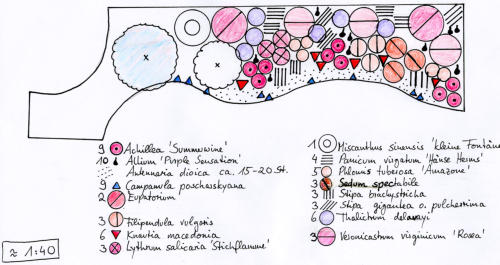 9 Achillea 'Summerwine'
10 Allium 'Purple Sensation'
Antennaria dioica ca. 15-20 St.
9 Campanula poscharskyana
2 Eupatorium
3 Filipendula vulgaris
6 Knautia macedonia
3 Lythrum salicaria 'Stichflamme'
≈ 1:40
1 Miscanthus sinensis 'Kleine Fontäne'
4 Panicum virgatum 'Hänse Herms'
5 Phlomis tuberosa 'Amazone'
3 Sedum spectabile
3 Stipa brachytricha
3 Stipa gigantea o. pulcherrima
6 Thalictrum delavayi
3 Veronicastrum virginicum 'Rosea'